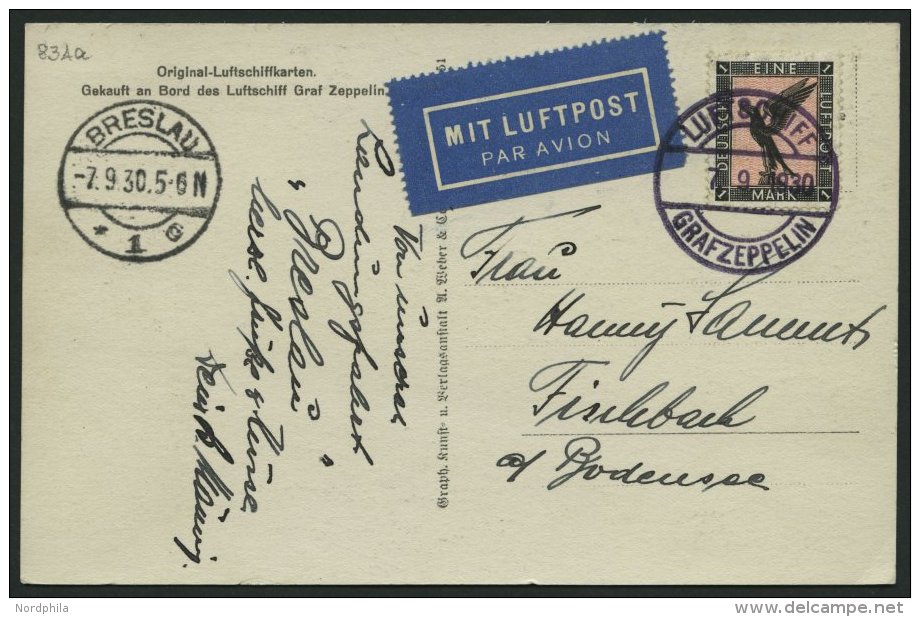 83Aa
Original-Luftschiffkarten.
Gekauft an Bord des Luftschiff Graf Zeppelin.
BRESLAU
-7.9.30.5-6 N
* 1 e
MIT LUFTPOST
PAR AVION
EINE
DEUTSCHE
LUFTPOST
MARK
1 1
1 1
LUFTSCHIFF
7. 9. 1930
GRAF ZEPPELIN
Von unserer
Landungsfahrt
"Breslau"
herzl. Grüße
Dein
Graph. Kunst- u. Verlagsanstalt A. Weber & Co.
51
Frau
Hanny
Fischbach
a/ Bodensee
Nordphila
delcampe.net